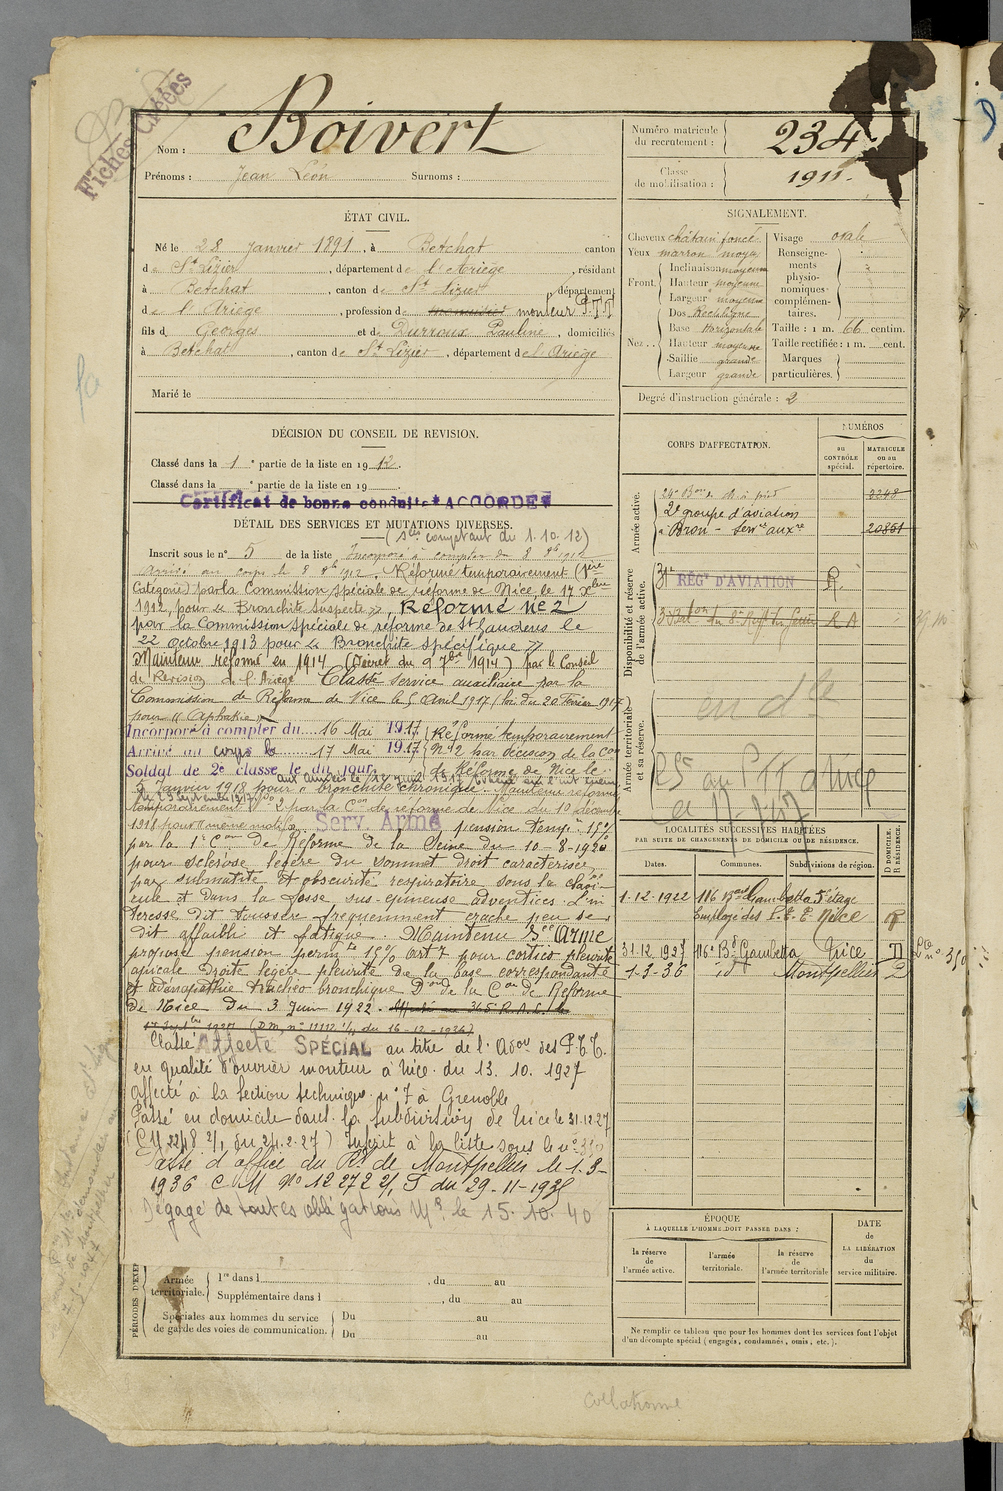 Fiches Créées
Nom : Boivert
Prénoms : Jean Léon Surnoms :
Numéro matricule du recrutement : 234
Classe de mobilisation : 1911.
ÉTAT CIVIL.
Né le 28 janvier 1891, à Betchat canton
de St Lizier, département de l'Ariège, résidant
à Betchat, canton de St Lizier, département
de l'Ariège, profession de monteur P.T.T
fils de Georges et de Durroux Pauline, domiciliés
à Betchat, canton de St Lizier, département de l'Ariège
Marié le
SIGNALEMENT.
Cheveux châtain foncé
Yeux marron moyen
Front. Inclinaison moyenne
Hauteur moyenne
Largeur moyenne
Nez. Dos Rectiligne
Base Horizontale
Hauteur moyenne
Saillie grande
Largeur grande
Visage ovale
Renseignements physionomiques complémentaires.
Taille : 1 m. 66 centim.
Taille rectifiée : 1 m. cent.
Marques particulières.
Degré d'instruction générale : 2
DÉCISION DU CONSEIL DE REVISION.
Classé dans la 1e partie de la liste en 1912.
Classé dans la e partie de la liste en 19
Certificat de bonne conduite ACCORDÉ
DÉTAIL DES SERVICES ET MUTATIONS DIVERSES.
(Ses comptant du 1.10.12)
Inscrit sous le n° 5 de la liste Incorporé à compter du 8 8bre 1912
Arrivé au corps le 8 8bre 1912. Réformé temporairement (1ère
Catégorie) par la Commission spéciale de réforme de Nice, le 17 Xbre
1912, pour « Bronchite suspecte », Réformé n° 2
par la Commission spéciale de réforme de St Gaudens le
22 octobre 1913 pour « Bronchite spécifique »
Maintenu réformé en 1914 (Décret du 9 7bre 1914) par le Conseil
de Révision de l'Ariège Classé service auxiliaire par la
Commission de Réforme de Nice le 5 Avril 1917 (loi du 20 février 1917)
pour « Aphakie »
Incorporé à compter du 16 Mai 1917 Réformé temporairement
Arrivé au corps le 17 Mai 1917 n° 2 par décision de la Con
Soldat de 2e classe le dit jour de Réforme de Nice le
5 Janvier 1918 pour « bronchite chronique. Maintenu réformé
temporairement n° 2 par la Con de réforme de Nice du 10 décembre
1918 pour même motif. Serv. Armé pension temp. 15%
par la 1e Con de Réforme de la Seine du 10-8-1920
pour sclérose légère du sommet droit caractérisée
par submatité et obscurité respiratoire sous la clavi-
cule et dans la fosse sus-épineuse adventices. L'in
téressé dit tousser fréquemment crache peu se
dit affaibli et fatigué. Maintenu See Armé
propose pension perm. 15% art 7 pour cortico pleurite
apicale droite légère pleurite de la base correspondante
et adénopathie trachéo bronchique Don de la Con de Réforme
de Nice du 3 Juin 1922.
(D.M. n° 11112 1/1 du 16-12-1926)
Classé Affecté SPÉCIAL au titre de l'Adon des P.T.T.
en qualité d'ouvrier monteur à Nice du 13.10.1927
affecté à la section technique n° 7 à Grenoble
Passé en domicile dans la subdivision de Nice le 31.12.27
(C.M. 2248 2/1 du 24.2.27) Inscrit à la liste sous le n° 350
Passé d'office au Rt de Montpellier le 1-3-
1936 C M N° 12272 2/1 S du 29-11-1935
Dégagé de toutes obligations Mres le 15.10.40
CORPS D'AFFECTATION.
NUMÉROS
au CONTRÔLE spécial.
MATRICULE ou au répertoire.
Armée active.
24e Bon de ch. à pied 3248
2e groupe d'aviation
à Bron - Servce auxre 20851
Disponibilité et réserve de l'armée active.
31e RÉGt D'AVIATION R.
Armée territoriale et sa réserve.
LOCALITÉS SUCCESSIVES HABITÉES
PAR SUITE DE CHANGEMENTS DE DOMICILE OU DE RÉSIDENCE.
Dates. Communes. Subdivisions de région. D DOMICILE. R RÉSIDENCE.
1.12.1922 116 Bard Gambetta 5e étage
Employé des P.T.T. Nice R
31.12.1927 116 Bd Gambetta Nice D Lte n° 350
1-3-36 id Montpellier D
ÉPOQUE
À LAQUELLE L'HOMME DOIT PASSER DANS :
la réserve de l'armée active.
l'armée territoriale.
la réserve de l'armée territoriale
DATE de LA LIBÉRATION du service militaire.
PÉRIODES D'EXER
Armée territoriale. 1re dans l , du au
Supplémentaire dans l , du au
Spéciales aux hommes du service de garde des voies de communication. Du au
Du au
Ne remplir ce tableau que pour les hommes dont les services font l'objet
d'un décompte spécial (engagés, condamnés, omis, etc.).
Collationné